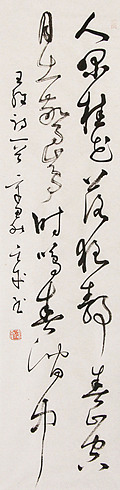 人閒桂花落夜靜春山空
月出驚山鳥時鳴春澗中
王維詩一首辛卯 書